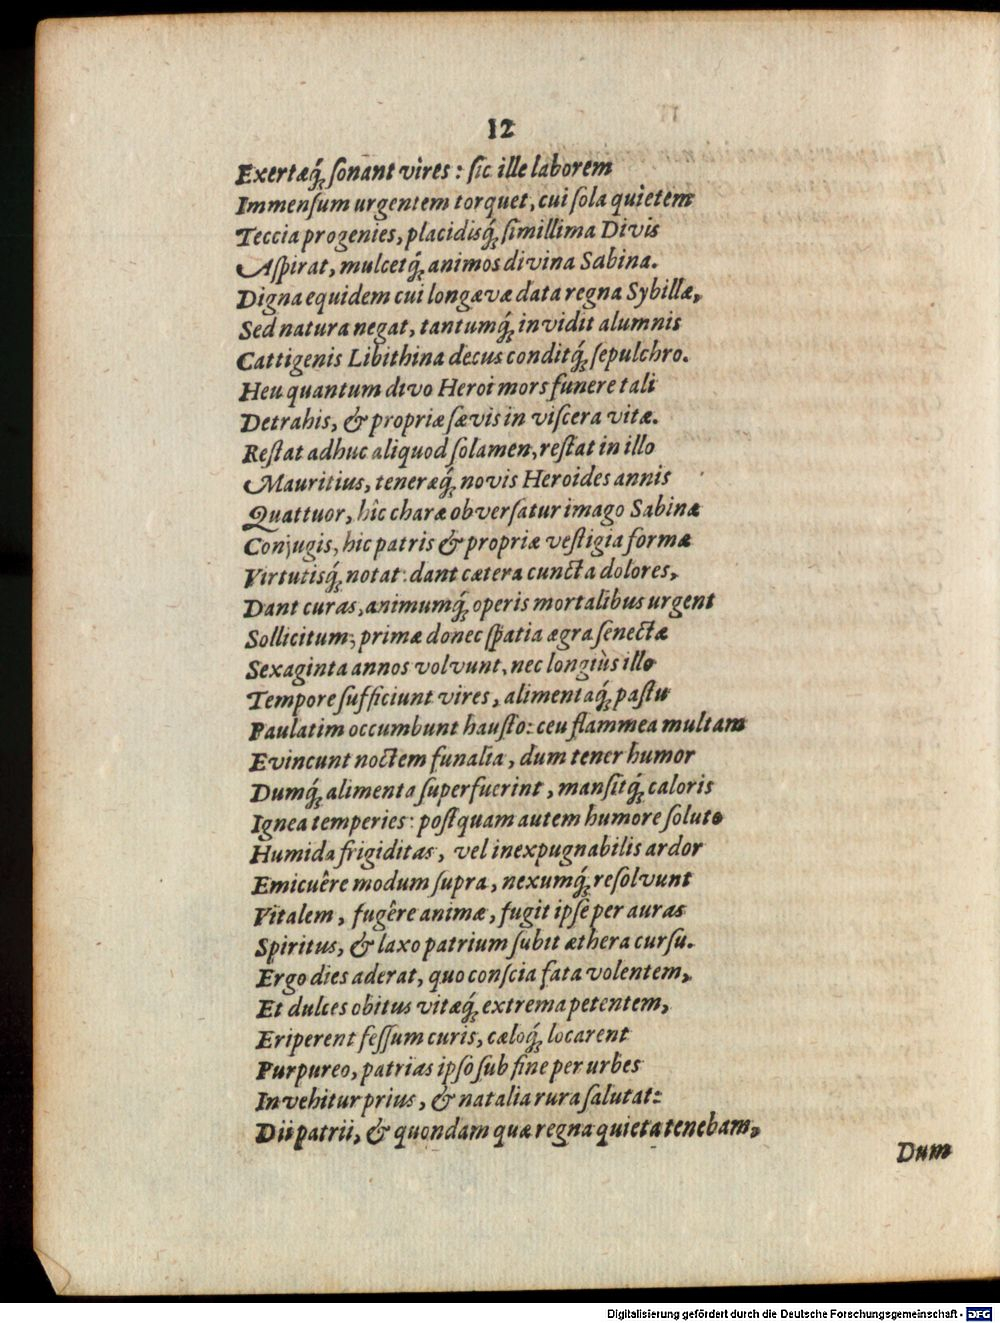 12
Exertæq́; ſonant vires : ſic ille laborem
Immenſum urgentem torquet, cui ſola quietem
Teccia progenies, placidisq́; ſimillima Divis
Aſpirat, mulcetq́; animos divina Sabina.
Digna equidem cui longævæ data regna Sybillæ,
Sed natura negat, tantumq́; invidit alumnis
Cattigenis Libithina decus conditq́; ſepulchro.
Heu quantum divo Heroi mors funere tali
Detrahis, & propriæ ſævis in viſcera vitæ.
Reſtat adhuc aliquod ſolamen, reſtat in illo
Mauritius, teneræq́; novis Heroides annis
Quattuor, hîc charæ obverſatur imago Sabinæ
Conjugis, hic patris & propriæ veſtigia formæ
Virtutisq́; notat: dant cætera cuncta dolores,
Dant curas, animumq́; operis mortalibus urgent
Sollicitum; primæ donec ſpatia ægra ſenectæ
Sexaginta annos volvunt, nec longiùs illo
Tempore ſufficiunt vires, alimentaq́; paſtu
Paulatim occumbunt hauſto: ceu flammea multam
Evincunt noctem funalia, dum tener humor
Dumq́; alimenta ſuperfuerint, manſitq́; caloris
Ignea temperies: poſtquam autem humore ſoluto
Humida frigiditas, vel inexpugnabilis ardor
Emicuêre modum ſupra, nexumq́; reſolvunt
Vitalem, fugêre animæ, fugit ipſe per auras
Spiritus, & laxo patrium ſubit æthera curſu.
Ergo dies aderat, quo conſcia fata volentem,
Et dulces obitus vitæq́; extrema petentem,
Eriperent feſſum curis, cæloq́; locarent
Purpureo, patrias ipſo ſub fine per urbes
Invehitur prius, & natalia rura ſalutat:
Dii patrii, & quondam quæ regna quieta tenebam,
Dum
Digitalisierung gefördert durch die Deutsche Forschungsgemeinschaft - DFG